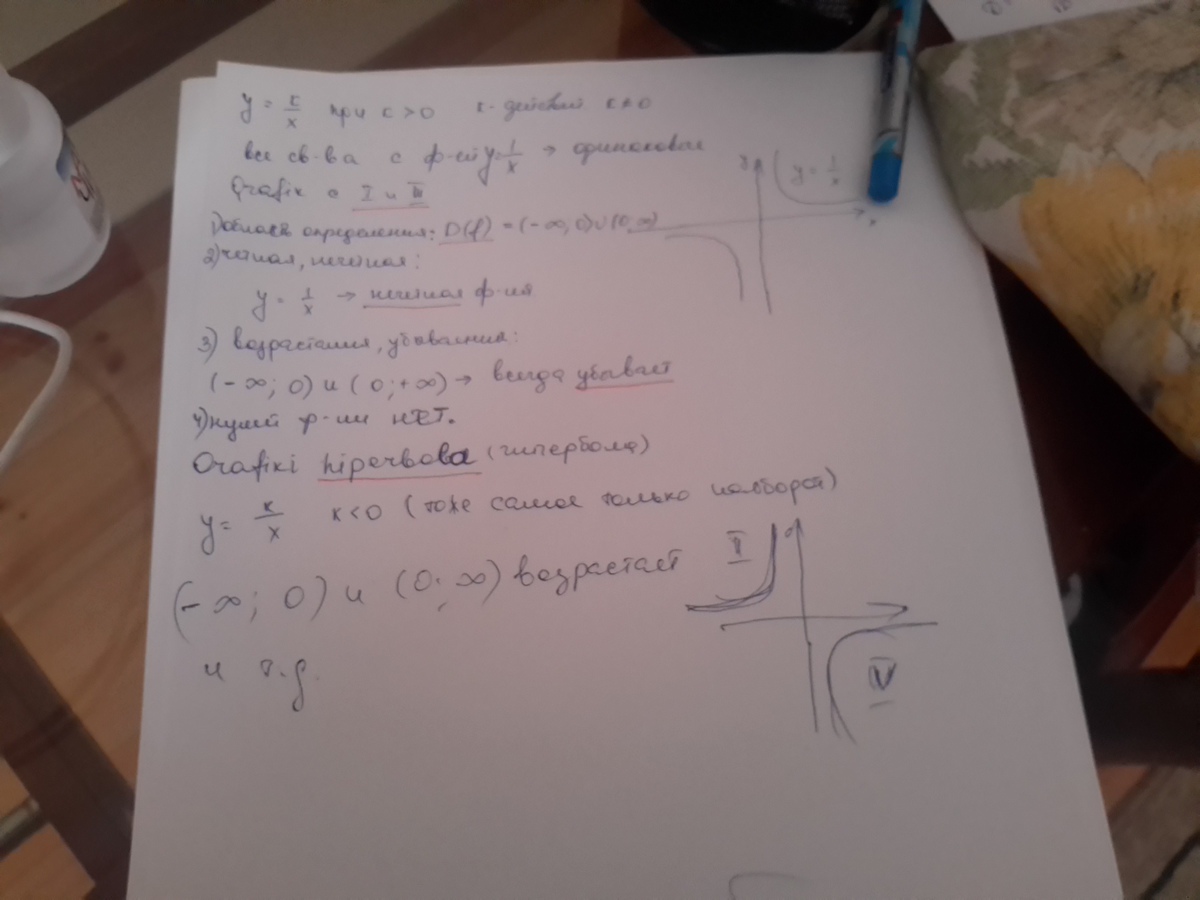 y = к/x при к > 0 к - действ к ≠ 0
все св-ва с ф-ей y = 1/x → одинаковая
Qrafik о I и III
y
y = 1/x
x
1) область определения: D(f) = (-∞; 0) ∪ (0; ∞)
2) четная, нечетная:
y = 1/x → нечетная ф-ия
3) возрастания, убывания:
(-∞; 0) и (0; +∞) → всегда убывает
4) нулей ф-ии НЕТ.
Qrafiki hiperbola (гипербола)
y = к/x к < 0 (тоже самое только наоборот)
(-∞; 0) и (0; ∞) возрастает
и т.д.
II
IV